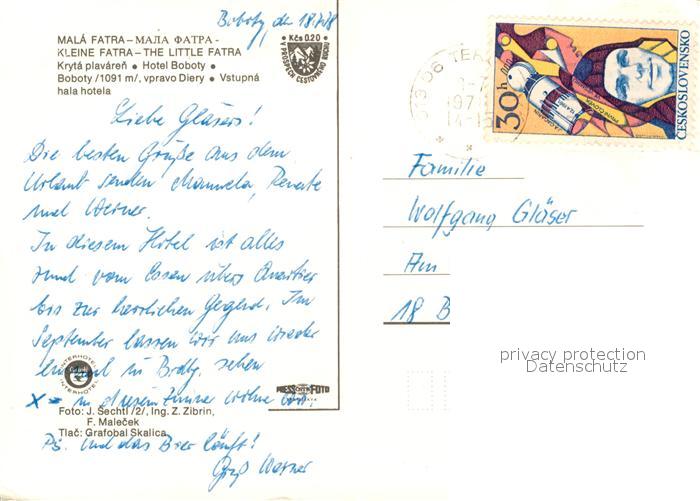 Boboty, den 18.7.78
MALÁ FATRA – МАЛА ФАТРА -
KLEINE FATRA – THE LITTLE FATRA
Krytá plaváreň • Hotel Boboty •
Boboty /1091 m/, vpravo Diery • Vstupná
hala hotela
Kčs 0.20
V PROSPECH CESTOVNÉHO RUCHU
Liebe Gläsers!
Die besten Grüße aus dem
Urlaub senden Manuela, Renate
und Werner.
In diesem Hotel ist alles
rund vom Essen übers Quartier
bis zur herrlichen Gegend. Im
September lassen wir uns wieder
einmal in Brdbg. sehen
X = in diesem Zimmer wohnen wir.
INTERHOTEL
INTERHOTEL
PRESSFOTO
Foto: J. Šechtl /2/, Ing. Z. Zibrin,
F. Maleček
Tlač: Grafobal Skalica
PS. Und das Bier läuft!
Gruß Werner
013 06 TE
14-15
30 h
ČESKOSLOVENSKO
Familie
Wolfgang Gläser
Am
18 B
privacy protection
Datenschutz